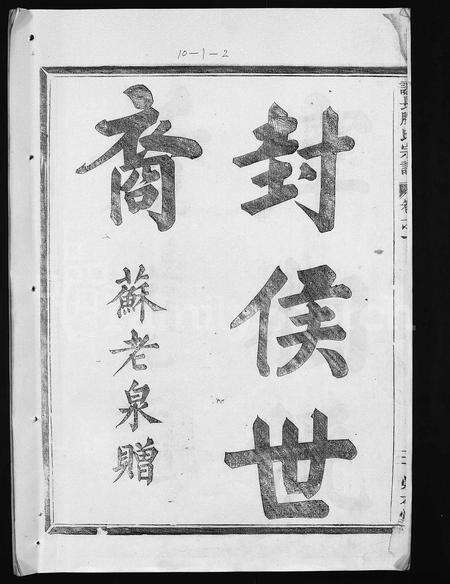 10-1-2
封侯世
裔
蘇老泉贈